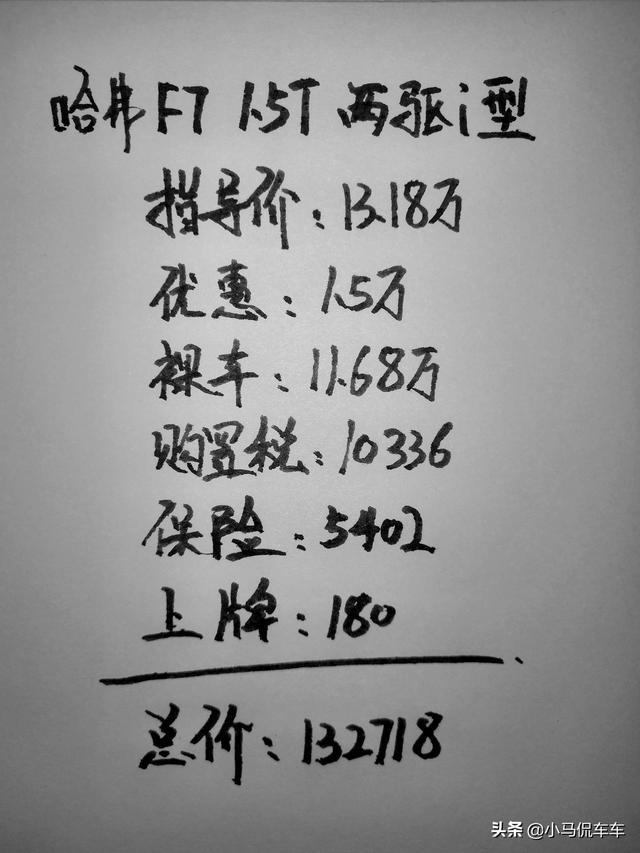 哈弗 F7 1.5T 两驱i型
指导价:13.18万
优惠:1.5万
裸车:11.68万
购置税:10336
保险:5402
上牌:180
总价:132718
头条 @小马侃车车